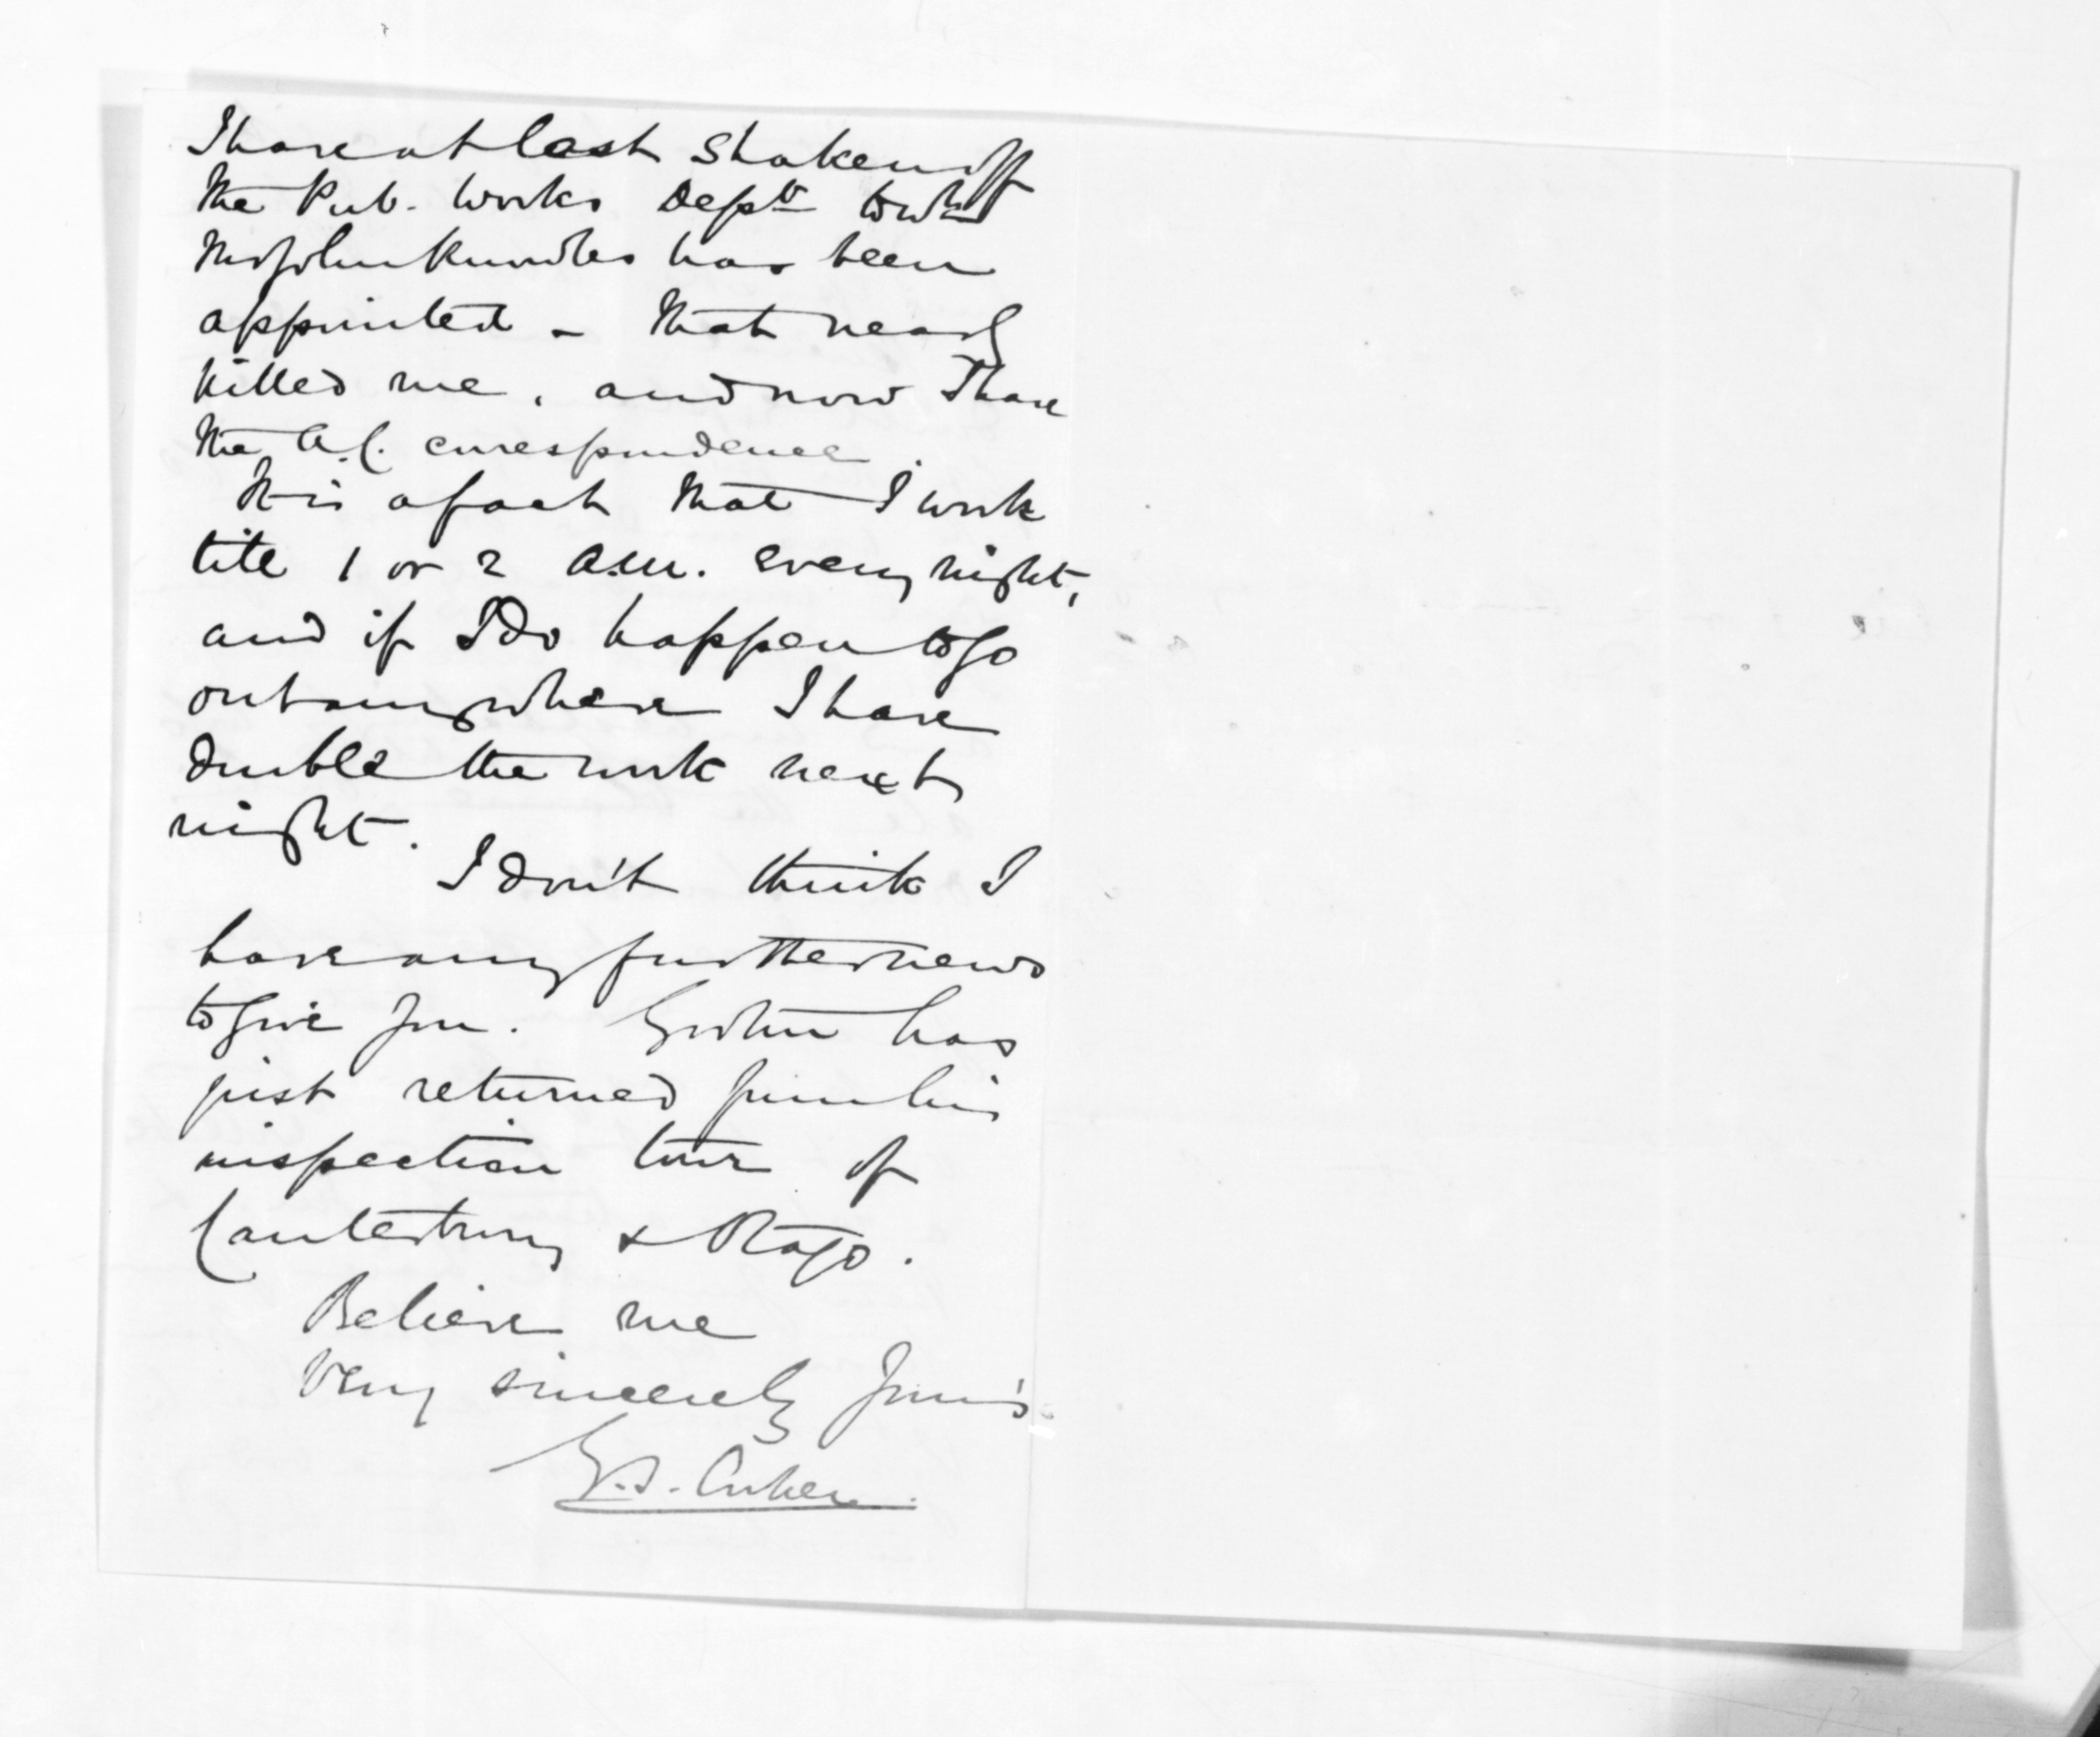 I have at last shaken off
the Pub. Works Dept. to wh
Mr John Knowles has been
appointed - that nearly
killed me, and now I have
the A.C. correspondence.
It is a fact that I work
till 1 or 2 a.m. every night,
and if I do happen to go
out anywhere I have
double the work next
night.
I don't think I
have any further news
to give you. has
just returned from his
inspection tour of
Canterbury & Otago.
Believe me
Very sincerely Your's
G.S. Cooper